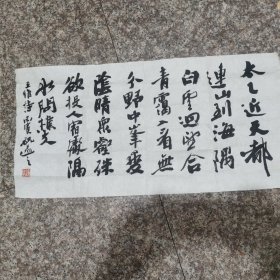 太乙近天都
連山到海隅
白雲迴望合
青靄入看無
分野中峯變
陰晴衆壑殊
欲投人宿處隔
水問樵夫
王維詩